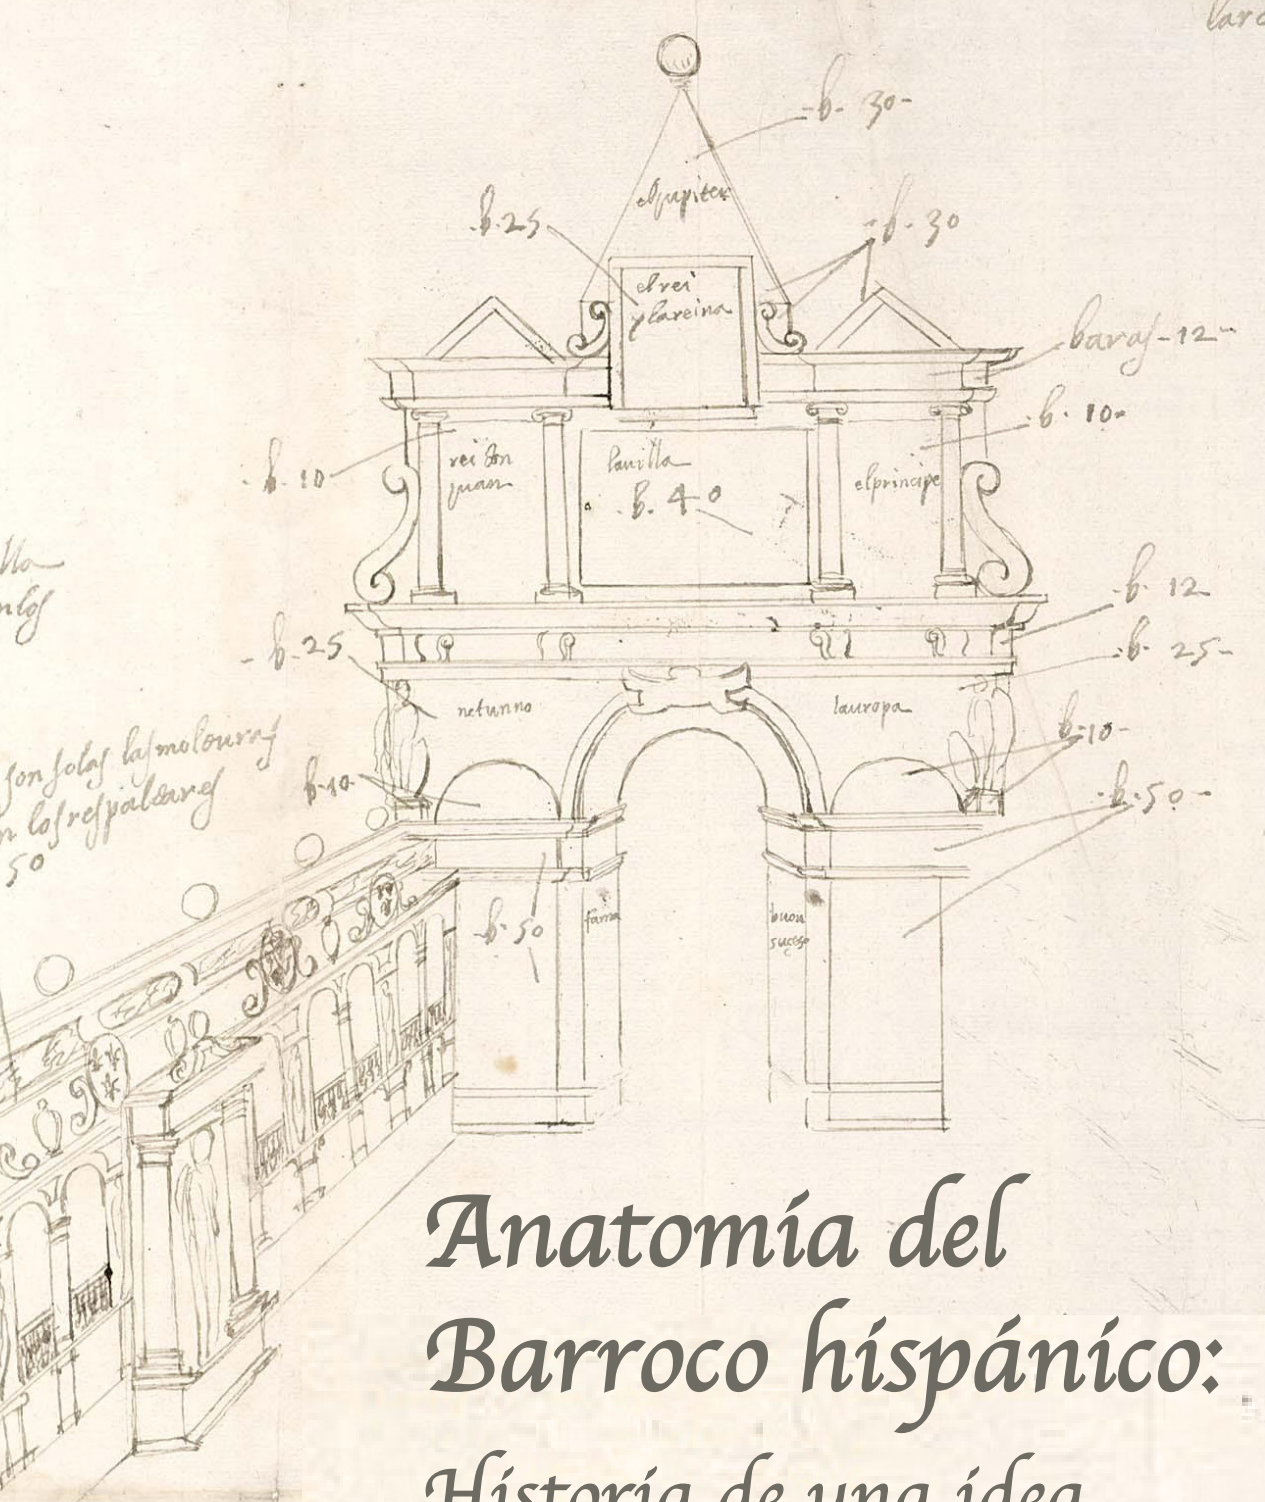 -b- 30-
el jupiter
-b. 25
-b. 30
el rei
y lareina
baras-12-
-b. 10-
-b. 10
rei don
juan
lavilla
b. 40
elprincipe
lla
-b. 12
-b-25
-b. 25-
netunno
lauropa
b-10-
son solas las molduras
n los respaldares
50
b-10-
-b-50-
-b-50
fama
buon
suceso
Anatomía del
Barroco hispánico:
Historia de una idea